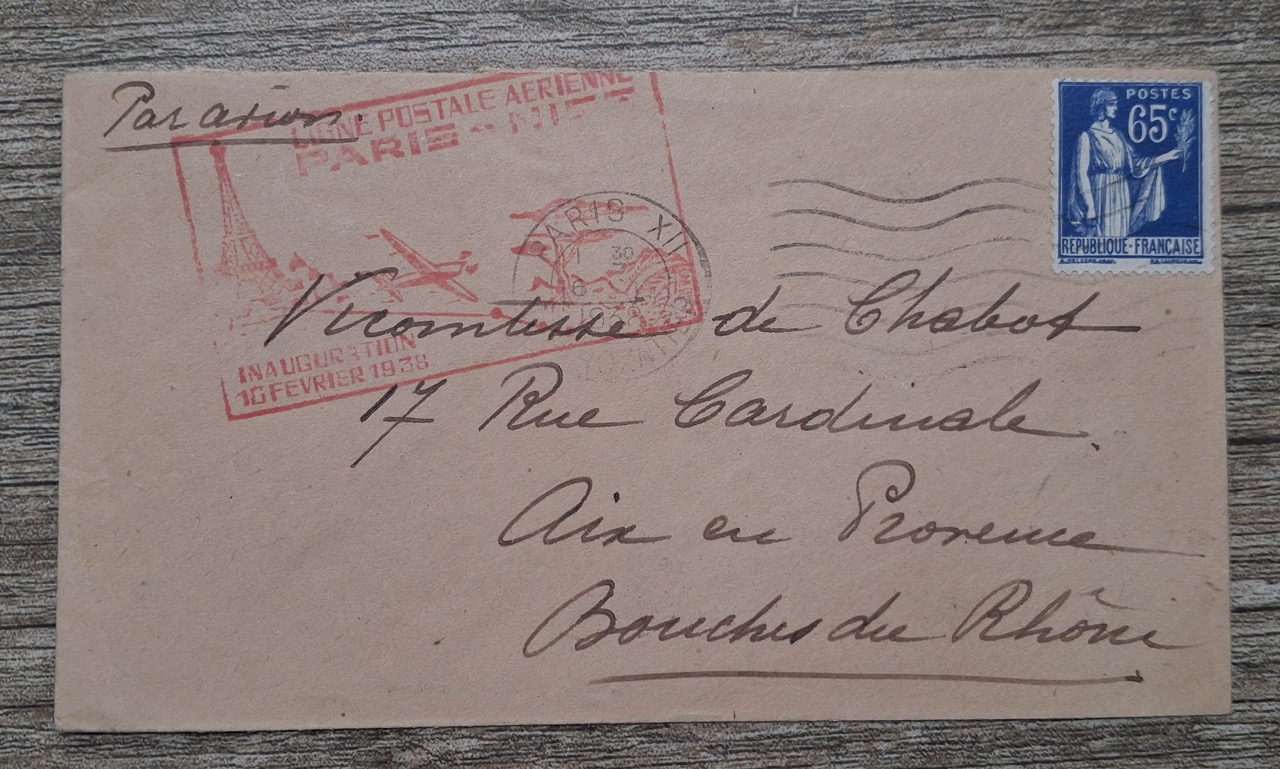 Par avion.
LIGNE POSTALE AERIENNE
PARIS - NICE
INAUGURATION
16 FEVRIER 1938
PARIS XII
1 30
16
1938
POSTES
65c
REPUBLIQUE-FRANÇAISE
Vicomtesse de Chabot
17 Rue Cardinale
Aix en Provence
Bouches du Rhône